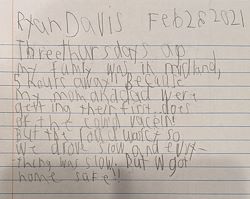 Ryan Davis Feb 28 2021
Three thursdays ago
my family was in midland,
5 hours away. Because
my mom and dad were
getting their first does
of the covid vaccin!
But the road wasct so
we drove slow, and evry-
thing was slow. But w got
home safe!!